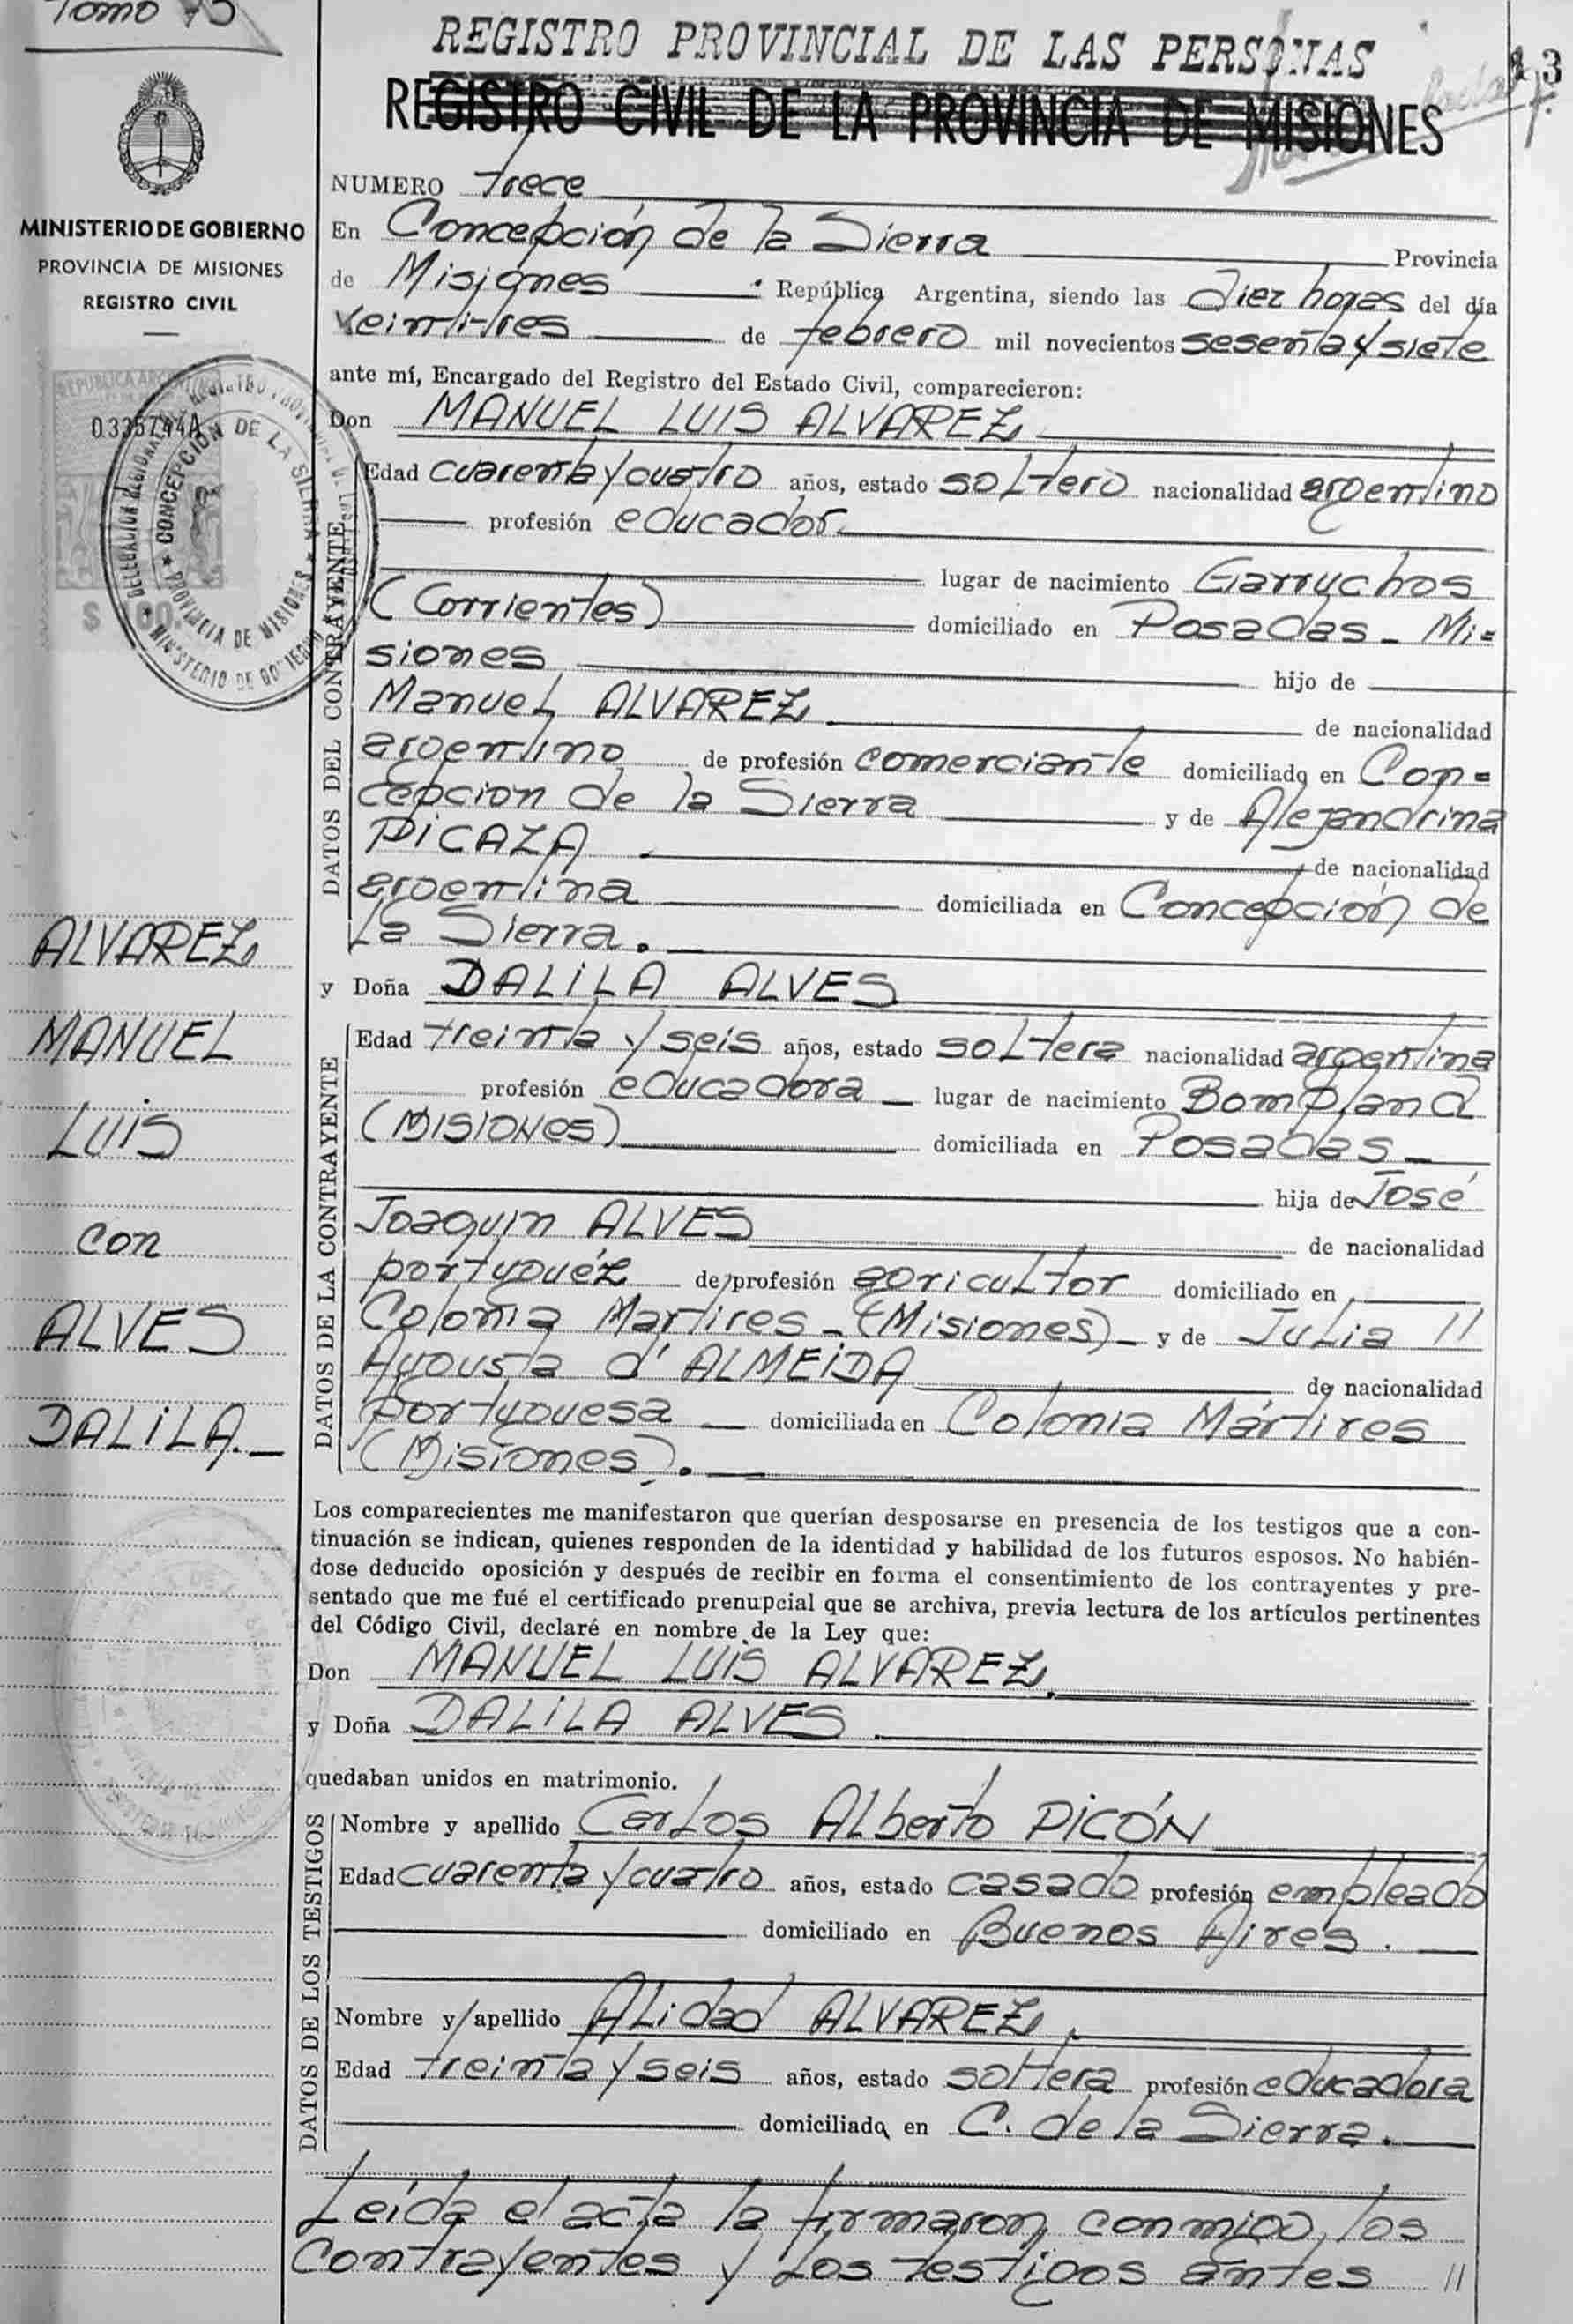 Tomo
REGISTRO PROVINCIAL DE LAS PERSONAS
13
REGISTRO CIVIL DE LA PROVINCIA DE MISIONES
MINISTERIO DE GOBIERNO
PROVINCIA DE MISIONES
REGISTRO CIVIL
REPUBLICA ARGENTINA
DELEGACION REGIONAL
CONCEPCION DE LA SIERRA
PROVINCIA DE MISIONES
MINISTERIO DE GOBIERNO
ALVAREZ
MANUEL
LUIS
con
ALVES
DALILA.—
NUMERO trece
En Concepción de la Sierra Provincia
de Misiones República Argentina, siendo las diez horas del día
veintitres de febrero mil novecientos sesenta y siete
ante mí, Encargado del Registro del Estado Civil, comparecieron:
Don MANUEL LUIS ALVAREZ
DATOS DEL CONTRAYENTE
Edad cuarenta y cuatro años, estado soltero nacionalidad argentino
profesión educador.
lugar de nacimiento Garruchos
(Corrientes) domiciliado en Posadas - Mi=
siones hijo de
Manuel ALVAREZ de nacionalidad
argentino de profesión comerciante domiciliado en Con=
cepcion de la Sierra y de Alejandrina
PICAZA de nacionalidad
argentina domiciliada en Concepción de
La Sierra.
y Doña DALILA ALVES
DATOS DE LA CONTRAYENTE
Edad treinta y seis años, estado soltera nacionalidad argentina
profesión educadora — lugar de nacimiento Bompland
(MISIONES) domiciliada en Posadas —
hija de José
Joaquin ALVES de nacionalidad
portuguéz de profesión agricultor domiciliado en
Colonia Martires - (Misiones) - y de Julia //
Augusta d' ALMEIDA de nacionalidad
portuguesa — domiciliada en Colonia Mártires
(Misiones). —
Los comparecientes me manifestaron que querían desposarse en presencia de los testigos que a con-
tinuación se indican, quienes responden de la identidad y habilidad de los futuros esposos. No habién-
dose deducido oposición y después de recibir en forma el consentimiento de los contrayentes y pre-
sentado que me fué el certificado prenupcial que se archiva, previa lectura de los artículos pertinentes
del Código Civil, declaré en nombre de la Ley que:
Don MANUEL LUIS ALVAREZ.
y Doña DALILA ALVES.
quedaban unidos en matrimonio.
DATOS DE LOS TESTIGOS
Nombre y apellido Carlos Alberto PICÓN
Edad cuarenta y cuatro años, estado casado profesión empleado
domiciliado en Buenos Aires. —
Nombre y apellido Alidad ALVAREZ.
Edad treinta y seis años, estado soltera profesión educadora
domiciliada en C. de la Sierra. —
Leída el acta la firmaron conmigo, los
contrayentes y los testigos antes //